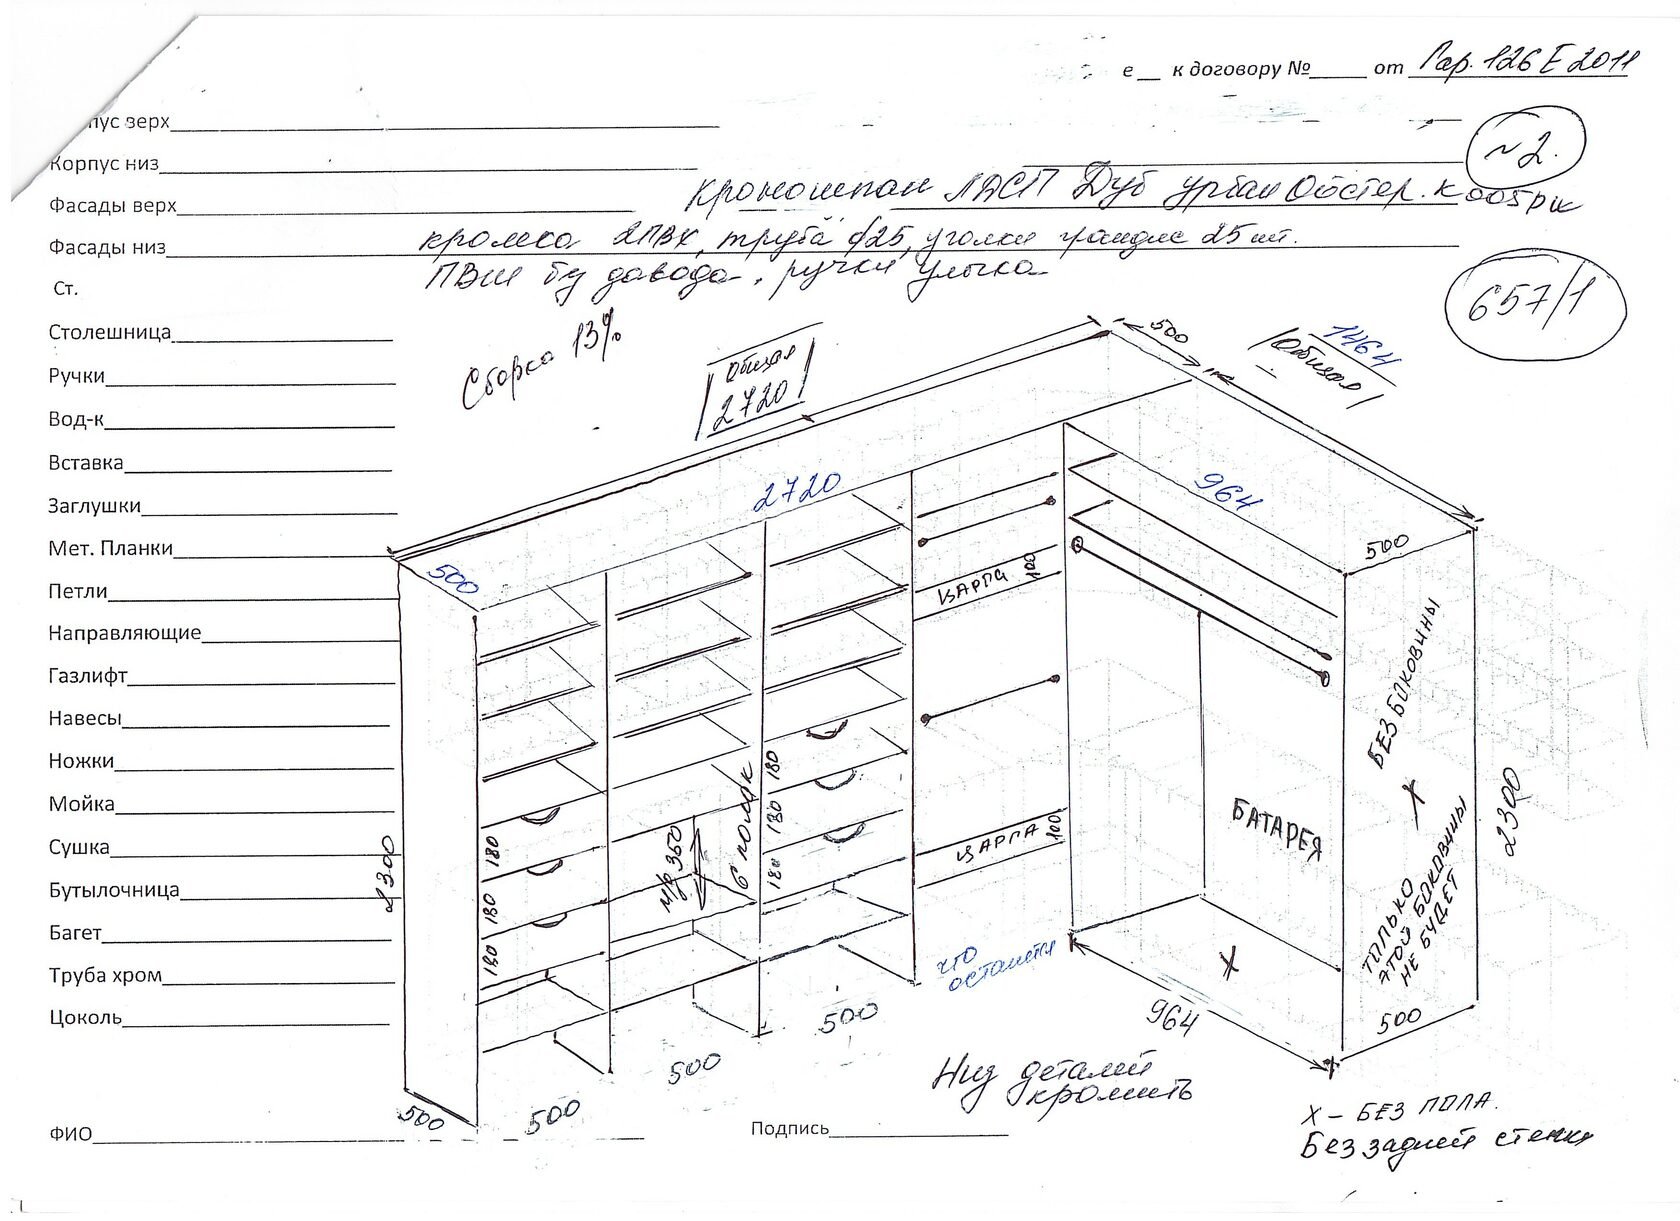 е__ к договору №_____ от Гар. 126Е 2011
пус верх
Корпус низ
№2.
Фасады верх
Кроношпан ЛДСП Дуб урбан Ойстер. К005 РW
Фасады низ
кромка 2ПВХ, труба ф25, уголки грандис 25шт.
ПВШ без довода, ручки улыбка
Ст.
657/1
Столешница
Ручки
Вод-к
Вставка
Заглушки
Мет. Планки
Петли
Направляющие
Газлифт
Навесы
Ножки
Мойка
Сушка
Бутылочница
Багет
Труба хром
Цоколь
Сборка 13%
Общая
2720
500
1464
Общая
2720
964
500
500
ЦАРГА 100
БЕЗ БОКОВИНЫ
Х
2300
2300
180
180
180
м/р 350
6 полок
180
180
180
ЦАРГА 100
БАТАРЕЯ
ТОЛЬКО
ЭТОЙ БОКОВИНЫ
НЕ БУДЕТ
что
останется
Х
964
500
500
500
500
500
Низ деталей
кромить
Х - БЕЗ ПОЛА.
Без задней стенки
ФИО
Подпись